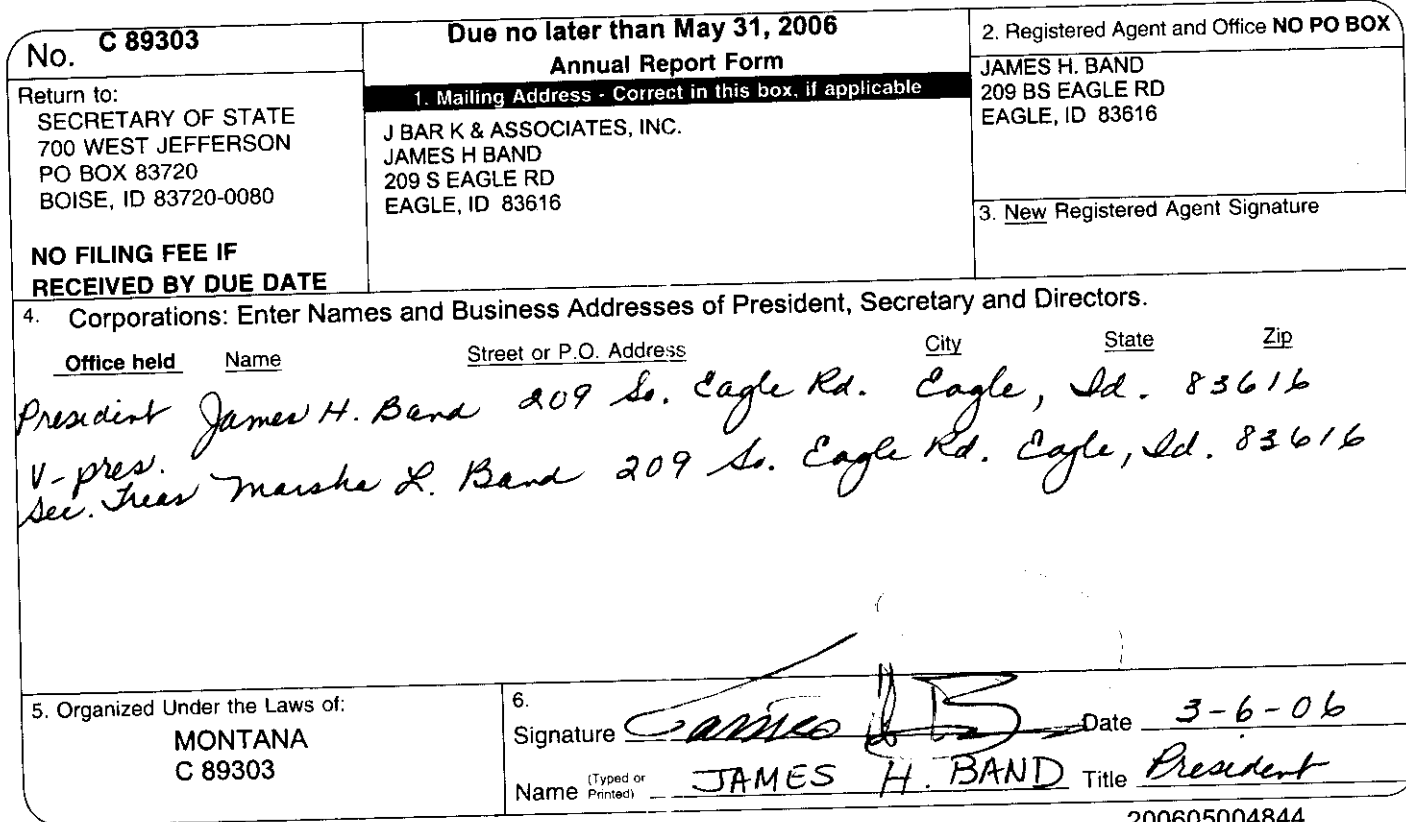 No. C 89303
Return to:
SECRETARY OF STATE
700 WEST JEFFERSON
PO BOX 83720
BOISE, ID 83720-0080
NO FILING FEE IF
RECEIVED BY DUE DATE
Due no later than May 31, 2006
Annual Report Form
1. Mailing Address - Correct in this box, if applicable
J BAR K & ASSOCIATES, INC.
JAMES H BAND
209 S EAGLE RD
EAGLE, ID 83616
2. Registered Agent and Office NO PO BOX
JAMES H. BAND
209 BS EAGLE RD
EAGLE, ID 83616
3. New Registered Agent Signature
4. Corporations: Enter Names and Business Addresses of President, Secretary and Directors.
Office held Name Street or P.O. Address City State Zip
President James H. Band 209 So. Eagle Rd. Eagle, Id. 83616
V-pres.
Sec. Treas Marsha L. Band 209 So. Eagle Rd. Eagle, Id. 83616
5. Organized Under the Laws of:
MONTANA
C 89303
6.
Signature James H B Date 3-6-06
Name (Typed or Printed) JAMES H. BAND Title President
200605004844